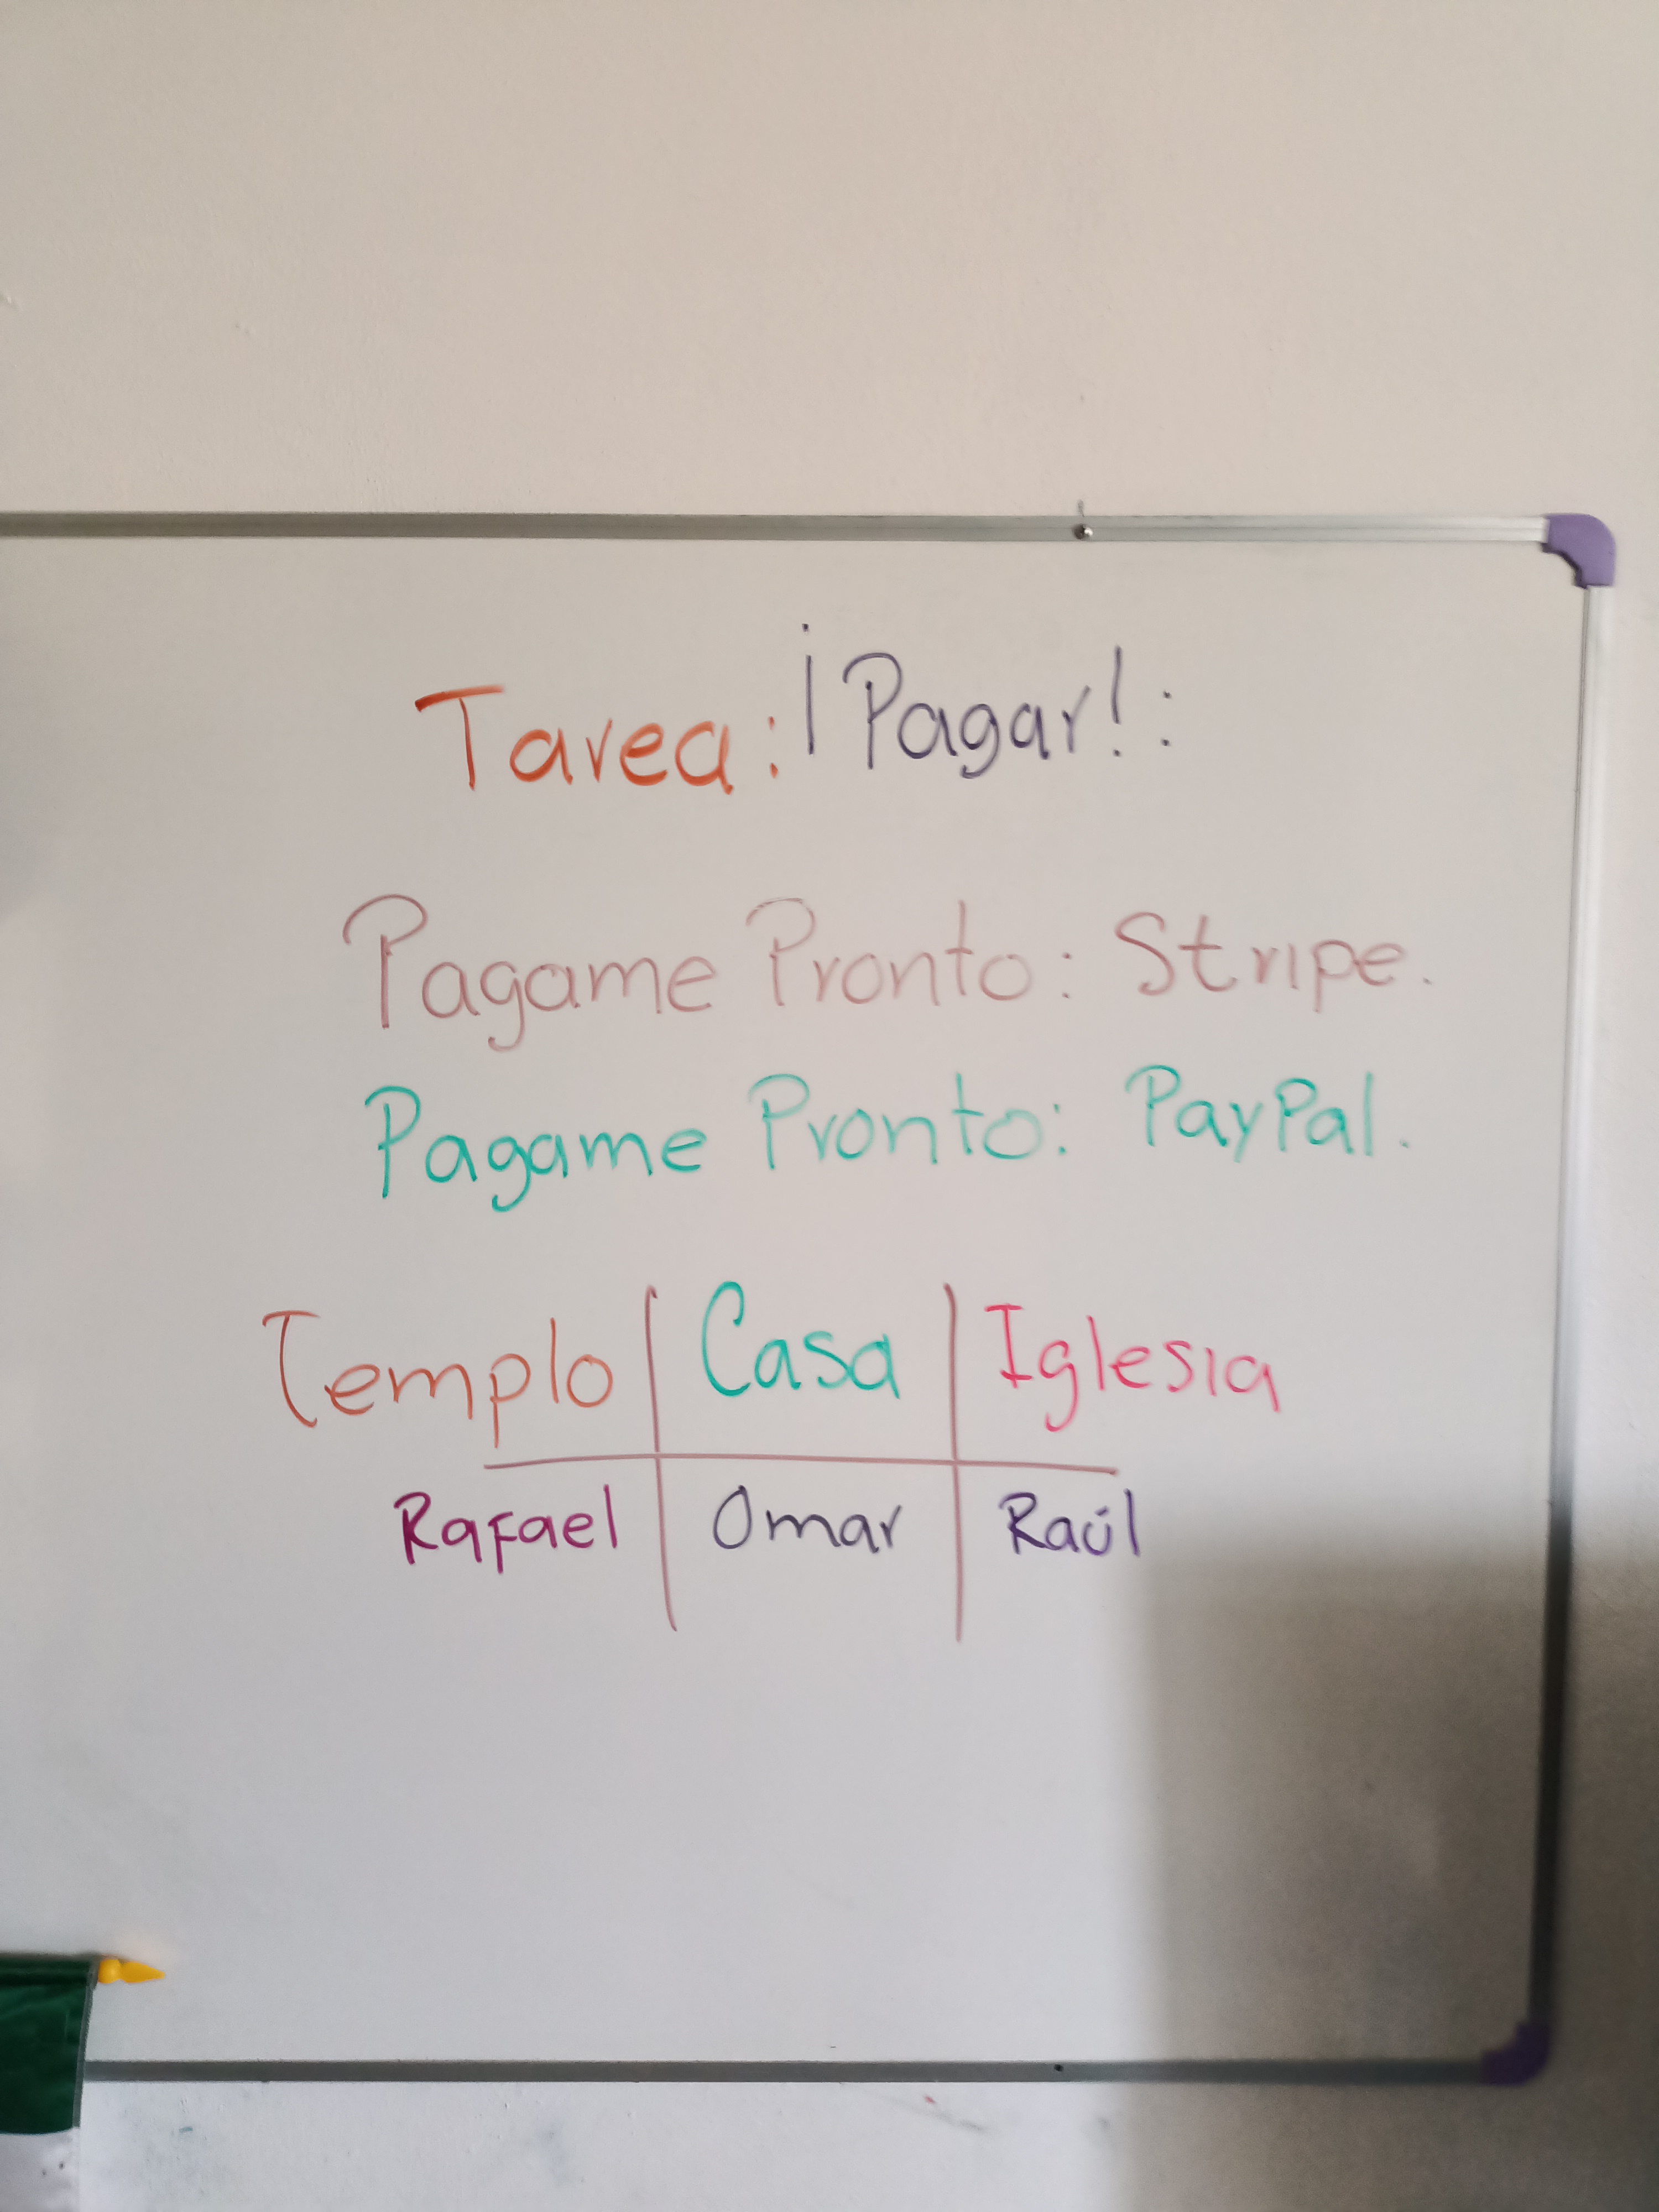 Tarea: ¡Pagar!:
Pagame Pronto: Stripe.
Pagame Pronto: PayPal.
Templo Casa Iglesia
Rafael Omar Raúl